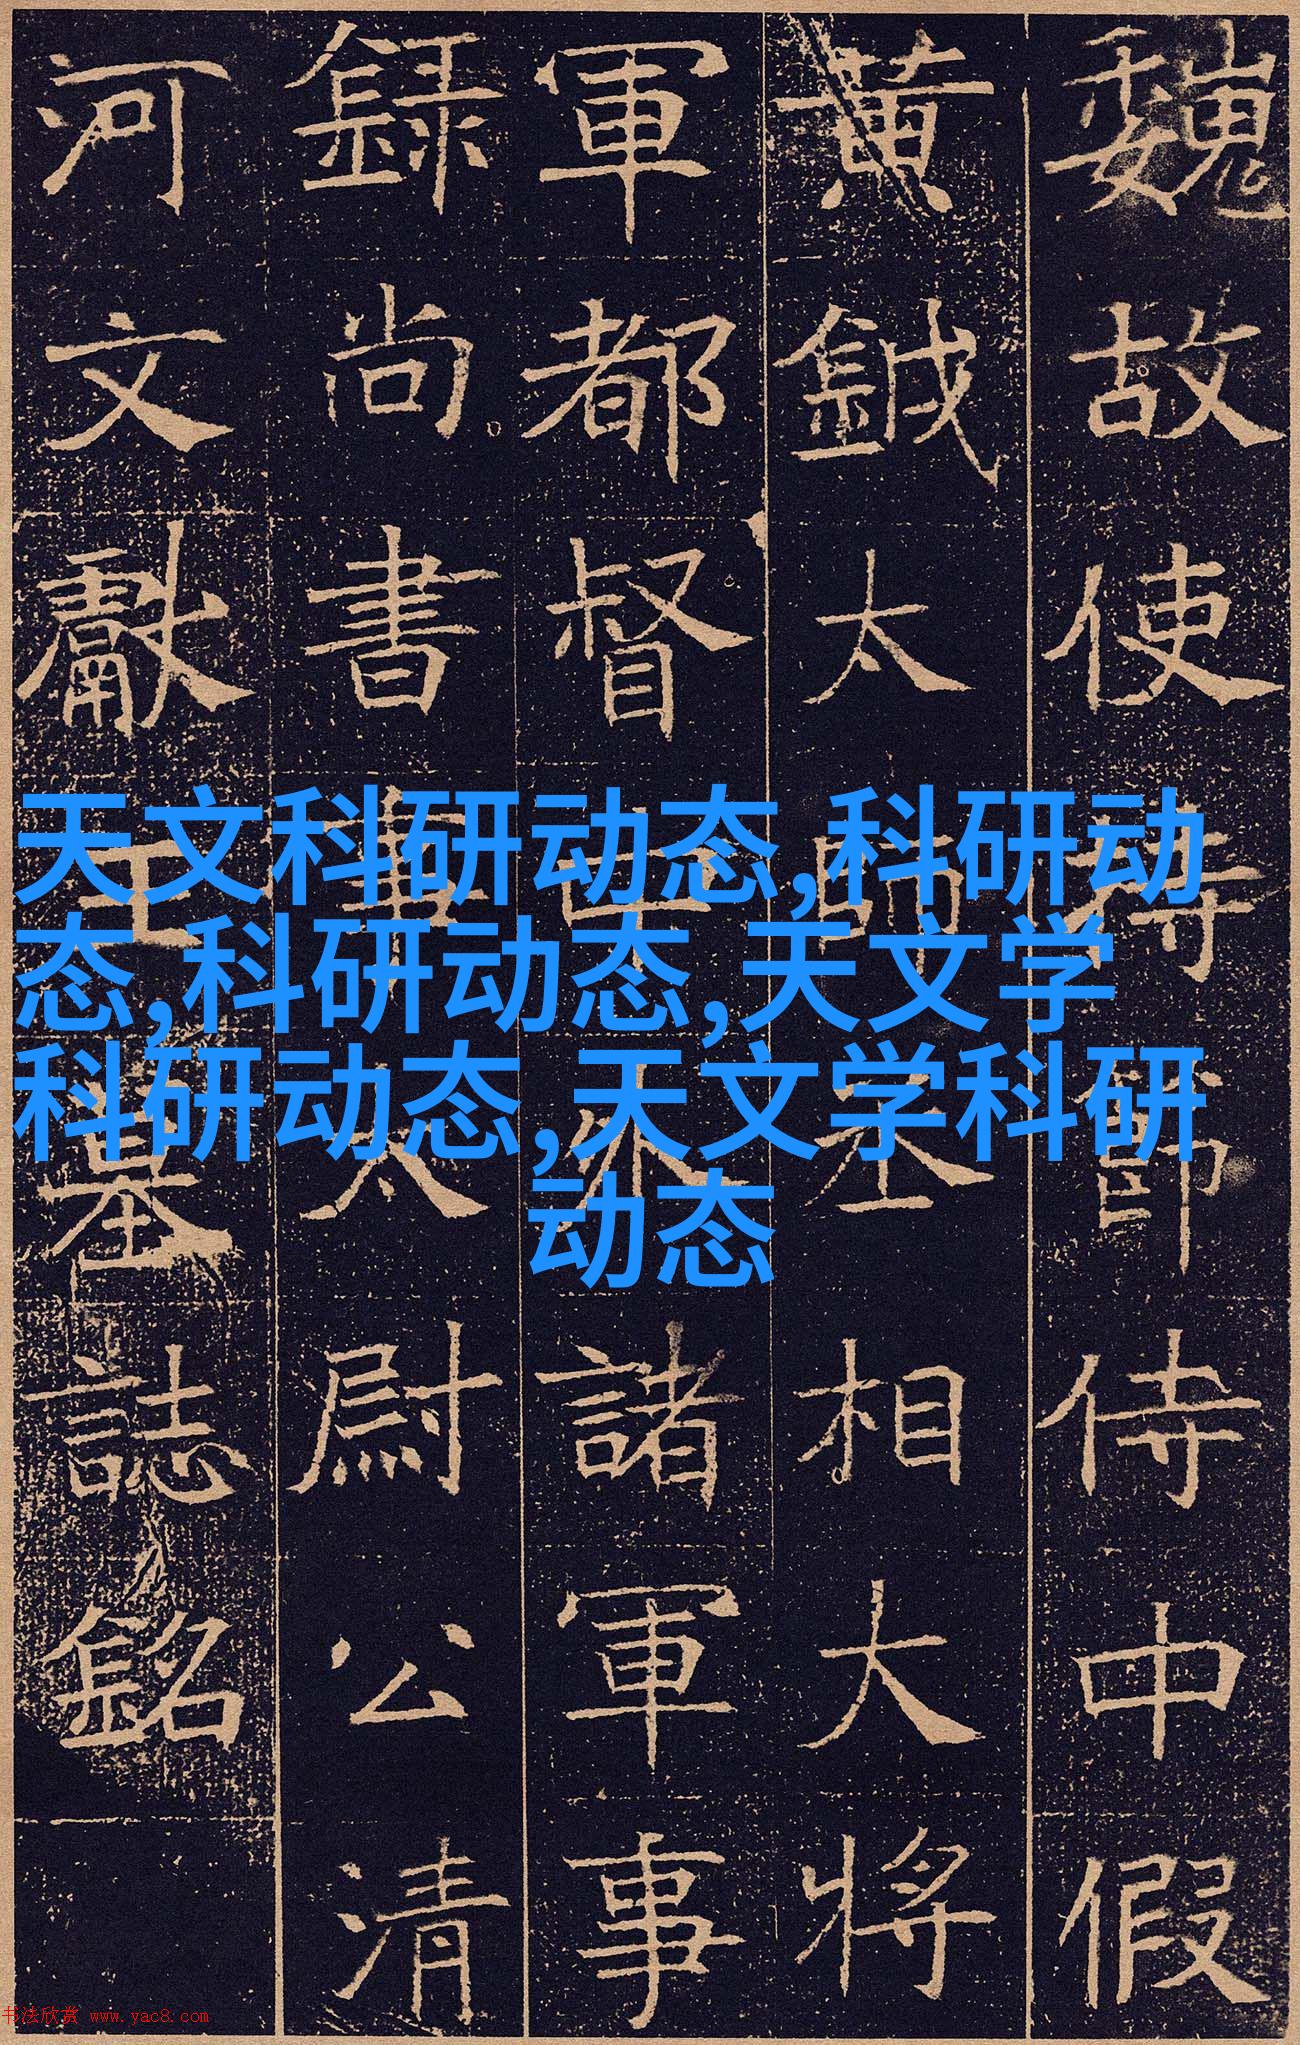 魏故使持節侍中假
黃鉞太師丞相大將
軍都督中外諸軍事
錄尚書事太尉公清
河文獻王墓誌銘
天文科研动态,科研动
态,科研动态,天文学
科研动态,天文学科研
动态
书法欣赏 www.yac8.com